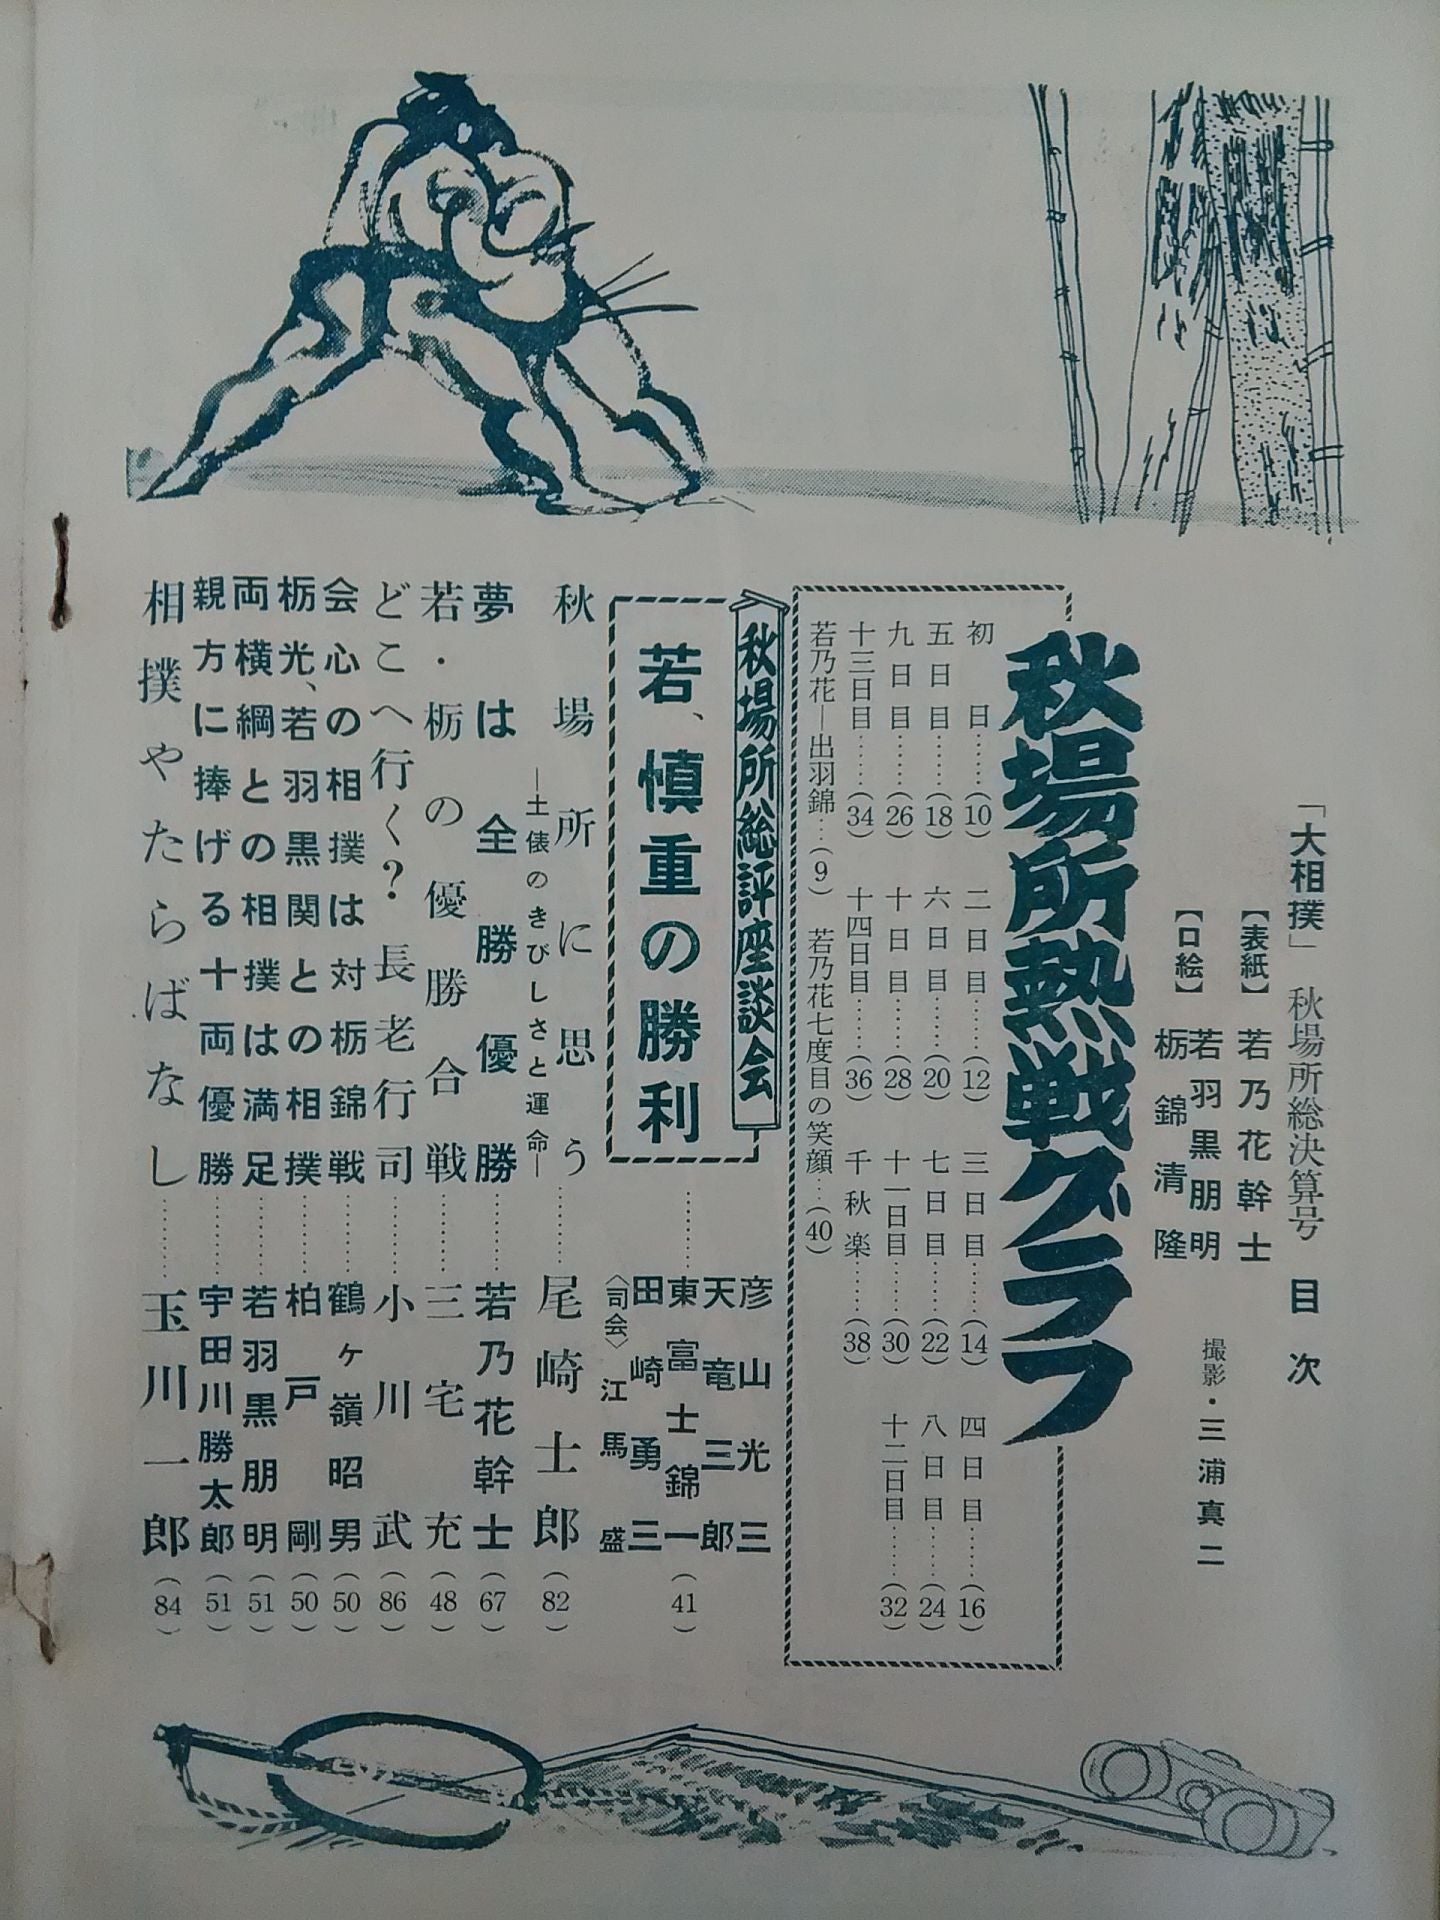 「大相撲」秋場所総決算号 目次
【表紙】若乃花幹士
【口絵】若羽黒朋明
栃錦清隆
撮影・三浦真二
秋場所熱戦グラフ
初日……(10) 二日目……(12) 三日目……(14) 四日目……(16)
五日目……(18) 六日目……(20) 七日目……(22) 八日目……(24)
九日目……(26) 十日目……(28) 十一日目……(30) 十二日目……(32)
十三日目……(34) 十四日目……(36) 千秋楽……(38)
若乃花―出羽錦…(9) 若乃花七度目の笑顔…(40)
秋場所総評座談会
若、慎重の勝利
彦山光三
天竜三郎
東富士錦一
田崎勇三
〈司会〉江馬盛
(41)
秋場所に思う……尾崎士郎(82)
―土俵のきびしさと運命―
夢は全勝優勝……若乃花幹士(67)
若・栃の優勝合戦……三宅充(48)
どこへ行く?長老行司……小川武(86)
会心の相撲は対栃錦戦……鶴ヶ嶺昭男(50)
栃光、若羽黒関との相撲……柏戸剛(50)
両横綱との相撲は満足……若羽黒朋明(51)
親方に捧げる十両優勝……宇田川勝太郎(51)
相撲やたらばなし……玉川一郎(84)